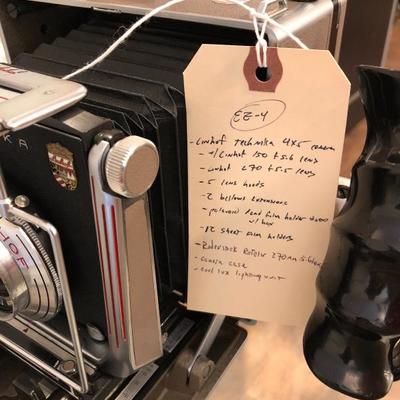 KA
HOF
EE-4
- Linhof Technika 4x5 camera
- w/ Linhof 150 f5.6 lens
- Linhof 270 f5.5 lens
- 5 lens hoods
- 2 bellows extensions
- polaroid land film holder
w/ box
- 12 sheet film holders
- Rodenstock Rotelar 270mm 5.6 lens
- camera case
- cool lux lighting unit